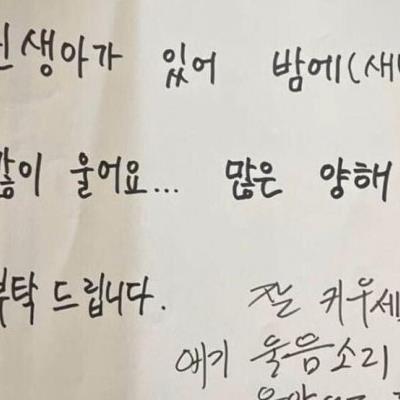 생아가 있어 밤에(새
많이 울어요... 많은 양해
부탁 드립니다.
잘 키우세
애기 울음소리